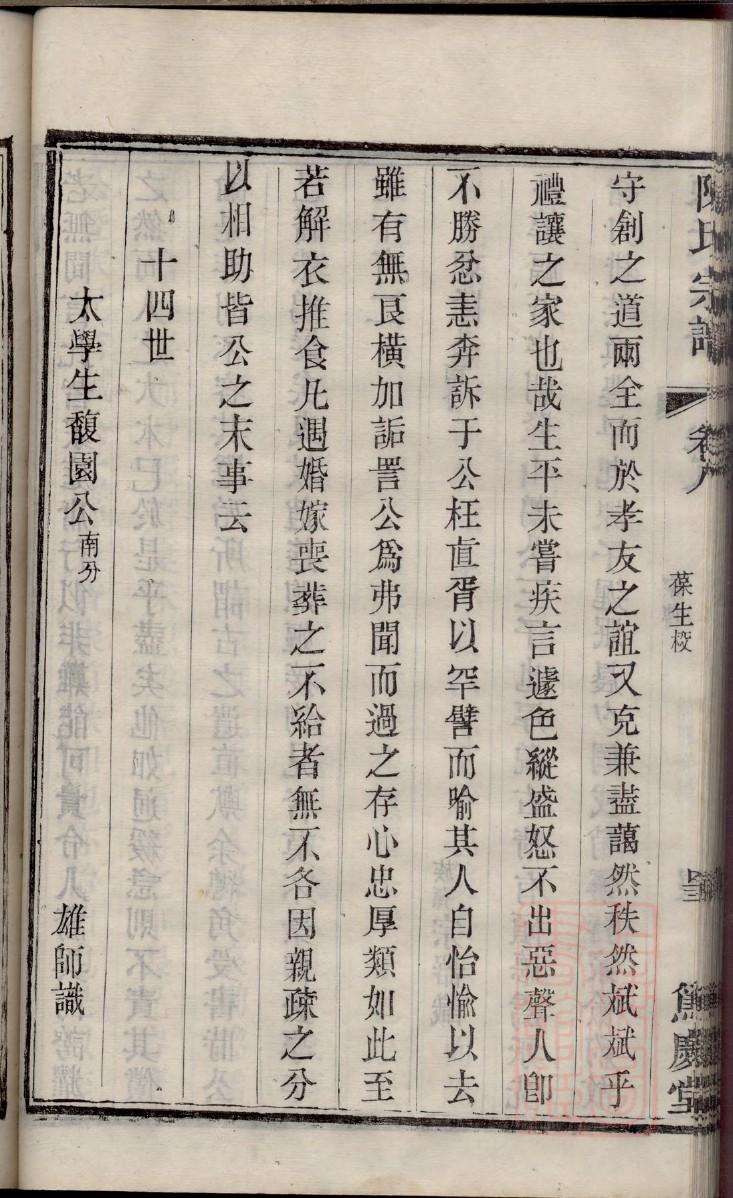 陳氏宗譜 卷八 葆生校 篤慶堂
守創之道兩全而於孝友之誼又克兼盡藹然秩然斌斌乎
禮讓之家也哉生平未嘗疾言遽色縱盛怒不出惡聲人卽
不勝忿恚奔訴于公枉直胥以罕譬而喻其人自怡愉以去
雖有無良橫加詬詈公爲弗聞而過之存心忠厚類如此至
若解衣推食凡遇婚嫁喪葬之不給者無不各因親疎之分
以相助皆公之末事云
十四世
太學生馥園公南分 雄師識